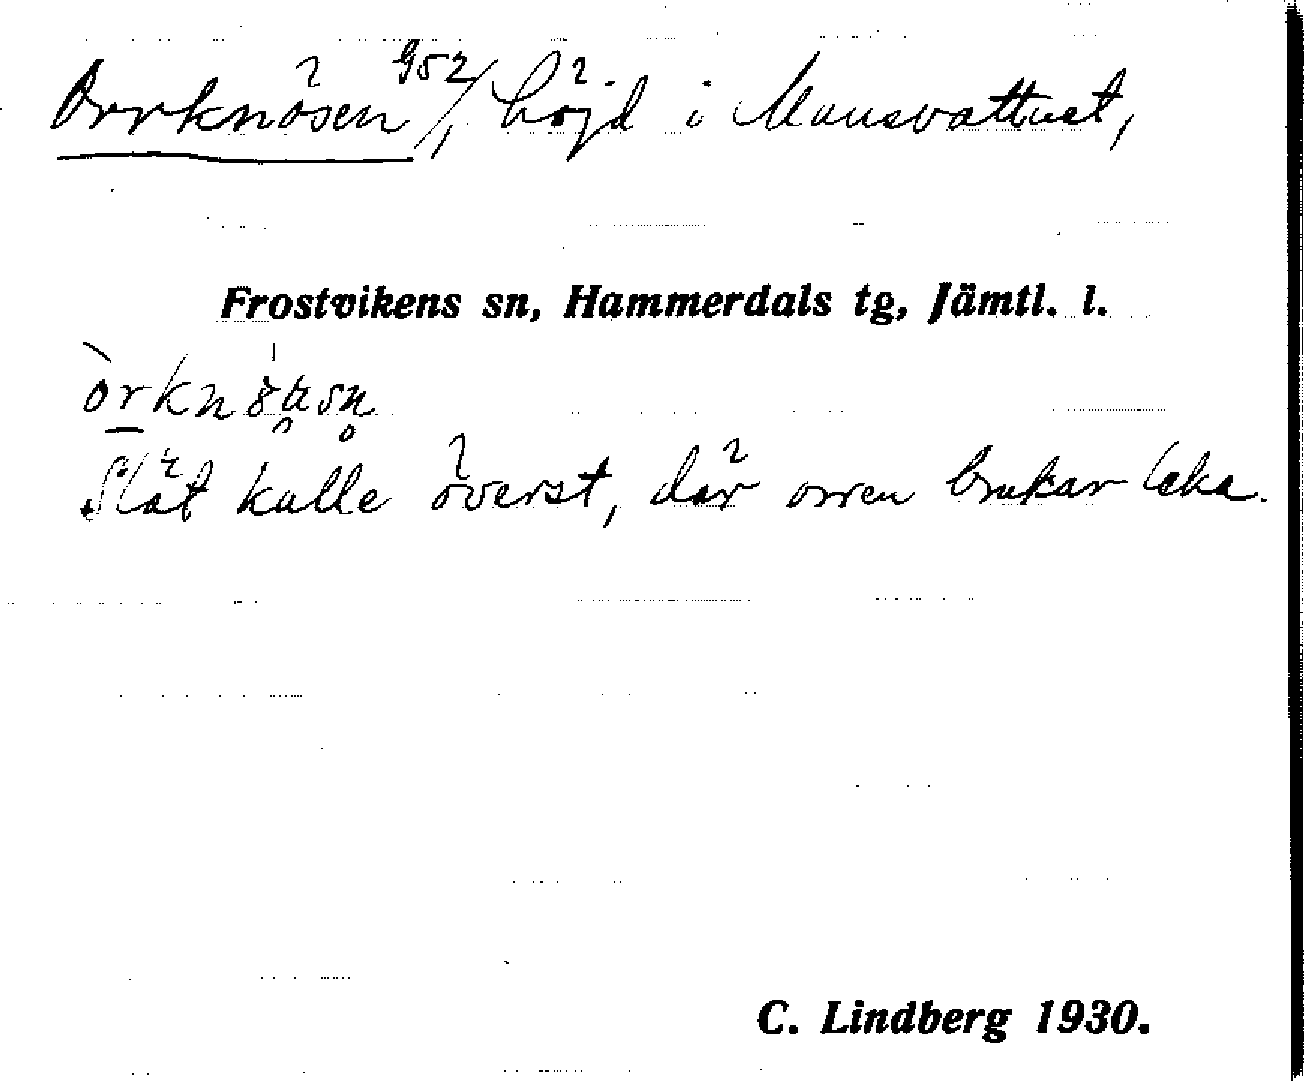 Orrknösen 952/, höjd i Mansvattnet,
Frostvikens sn, Hammerdals tg, Jämtl. l.
Slät kulle överst, där orren brukar leka.
C. Lindberg 1930.